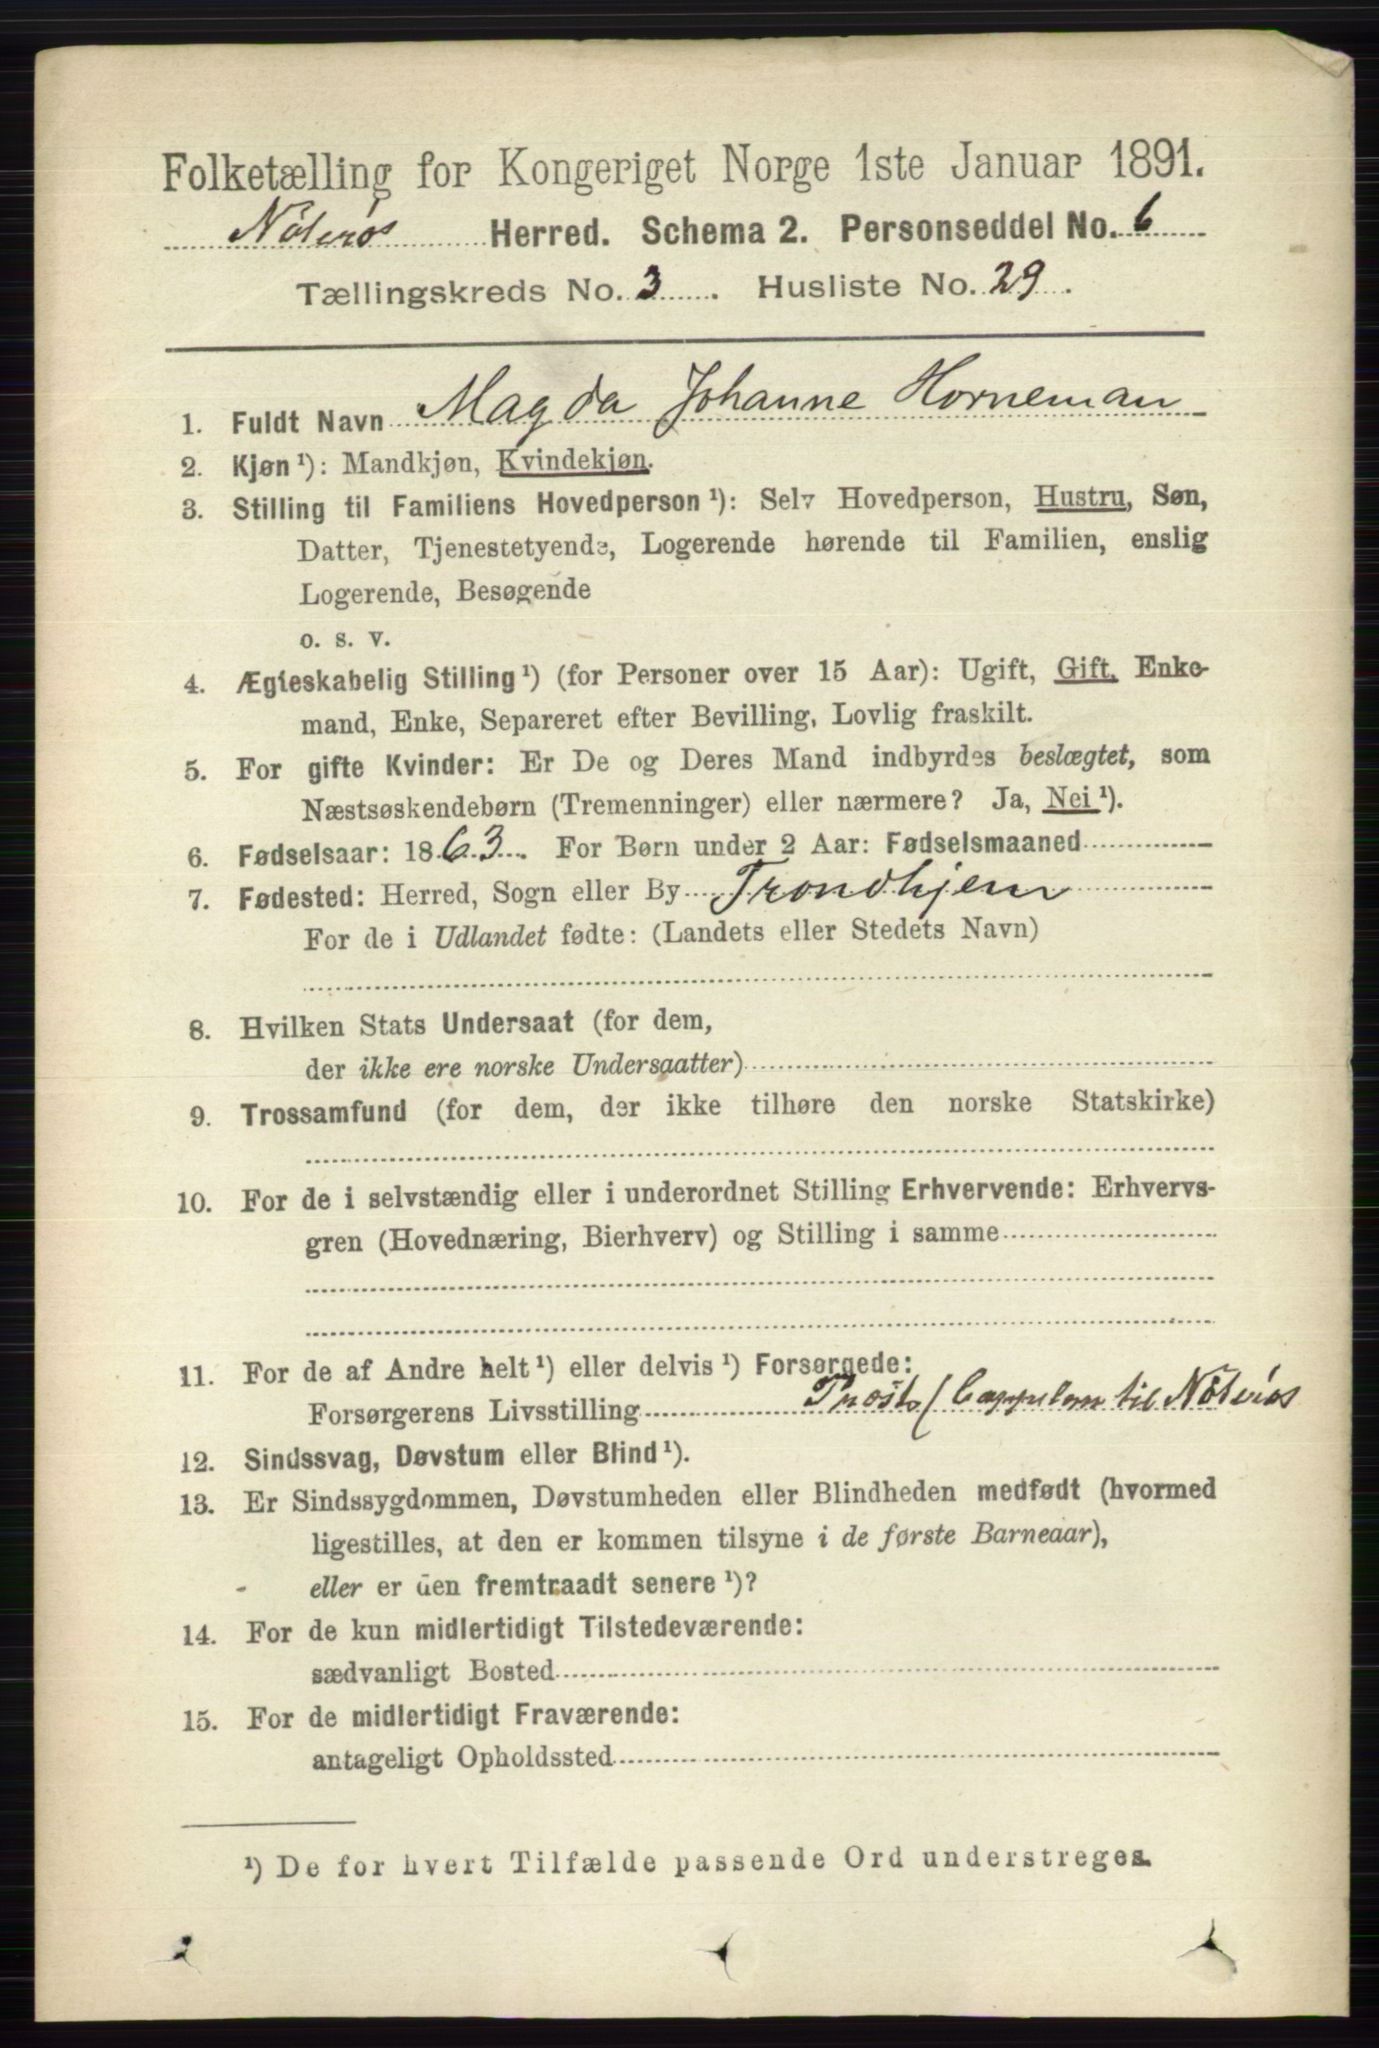 Folketælling for Kongeriget Norge 1ste Januar 1891.
Nöterös Herred. Schema 2. Personseddel No. 6
Tællingskreds No. 3. Husliste No. 29.
1. Fuldt Navn Magda Johanne Horneman
2. Kjøn ¹): Mandkjøn, Kvindekjøn.
3. Stilling til Familiens Hovedperson ¹): Selv Hovedperson, Hustru, Søn,
Datter, Tjenestetyende, Logerende hørende til Familien, enslig
Logerende, Besøgende
o. s. v.
4. Ægteskabelig Stilling ¹) (for Personer over 15 Aar): Ugift, Gift, Enke-
mand, Enke, Separeret efter Bevilling, Lovlig fraskilt.
5. For gifte Kvinder: Er De og Deres Mand indbyrdes beslægtet, som
Næstsøskendebørn (Tremenninger) eller nærmere? Ja, Nei ¹).
6. Fødselsaar: 1863. For Børn under 2 Aar: Fødselsmaaned
7. Fødested: Herred, Sogn eller By Trondhjem
For de i Udlandet fødte: (Landets eller Stedets Navn)
8. Hvilken Stats Undersaat (for dem,
der ikke ere norske Undersaatter)
9. Trossamfund (for dem, der ikke tilhøre den norske Statskirke)
10. For de i selvstændig eller i underordnet Stilling Erhvervende: Erhvervs-
gren (Hovednæring, Bierhverv) og Stilling i samme
11. For de af Andre helt ¹) eller delvis ¹) Forsørgede:
Forsørgerens Livsstilling til Nöterös
12. Sindssvag, Døvstum eller Blind ¹).
13. Er Sindssygdommen, Døvstumheden eller Blindheden medfødt (hvormed
ligestilles, at den er kommen tilsyne i de første Barneaar),
eller er den fremtraadt senere ¹)?
14. For de kun midlertidigt Tilstedeværende:
sædvanligt Bosted
15. For de midlertidigt Fraværende:
antageligt Opholdssted
¹) De for hvert Tilfælde passende Ord understreges.